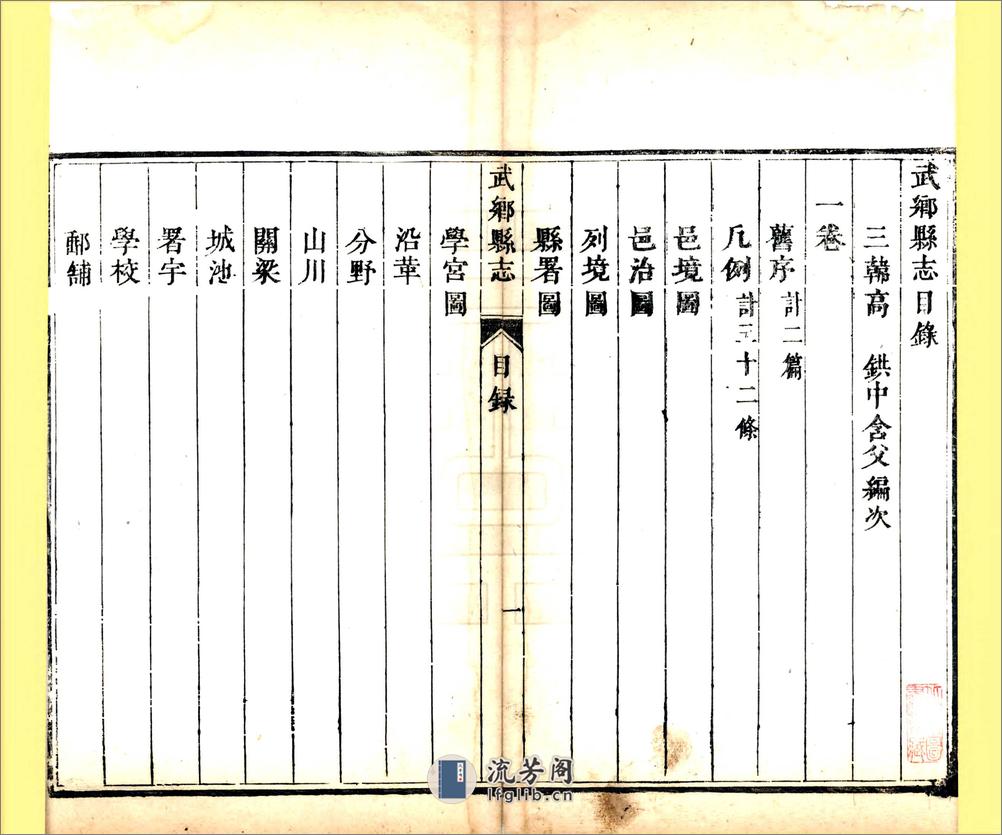 武鄉縣志目錄
三韓高 鉷中含父編次
一卷
舊序計二篇
凡例計三十二條
邑境圖
邑治圖
列境圖
縣署圖
武鄉縣志 目録 一
學宮圖
沿革
分野
山川
關梁
城池
署宇
學校
郵舖
流芳阁
lfglib.cn